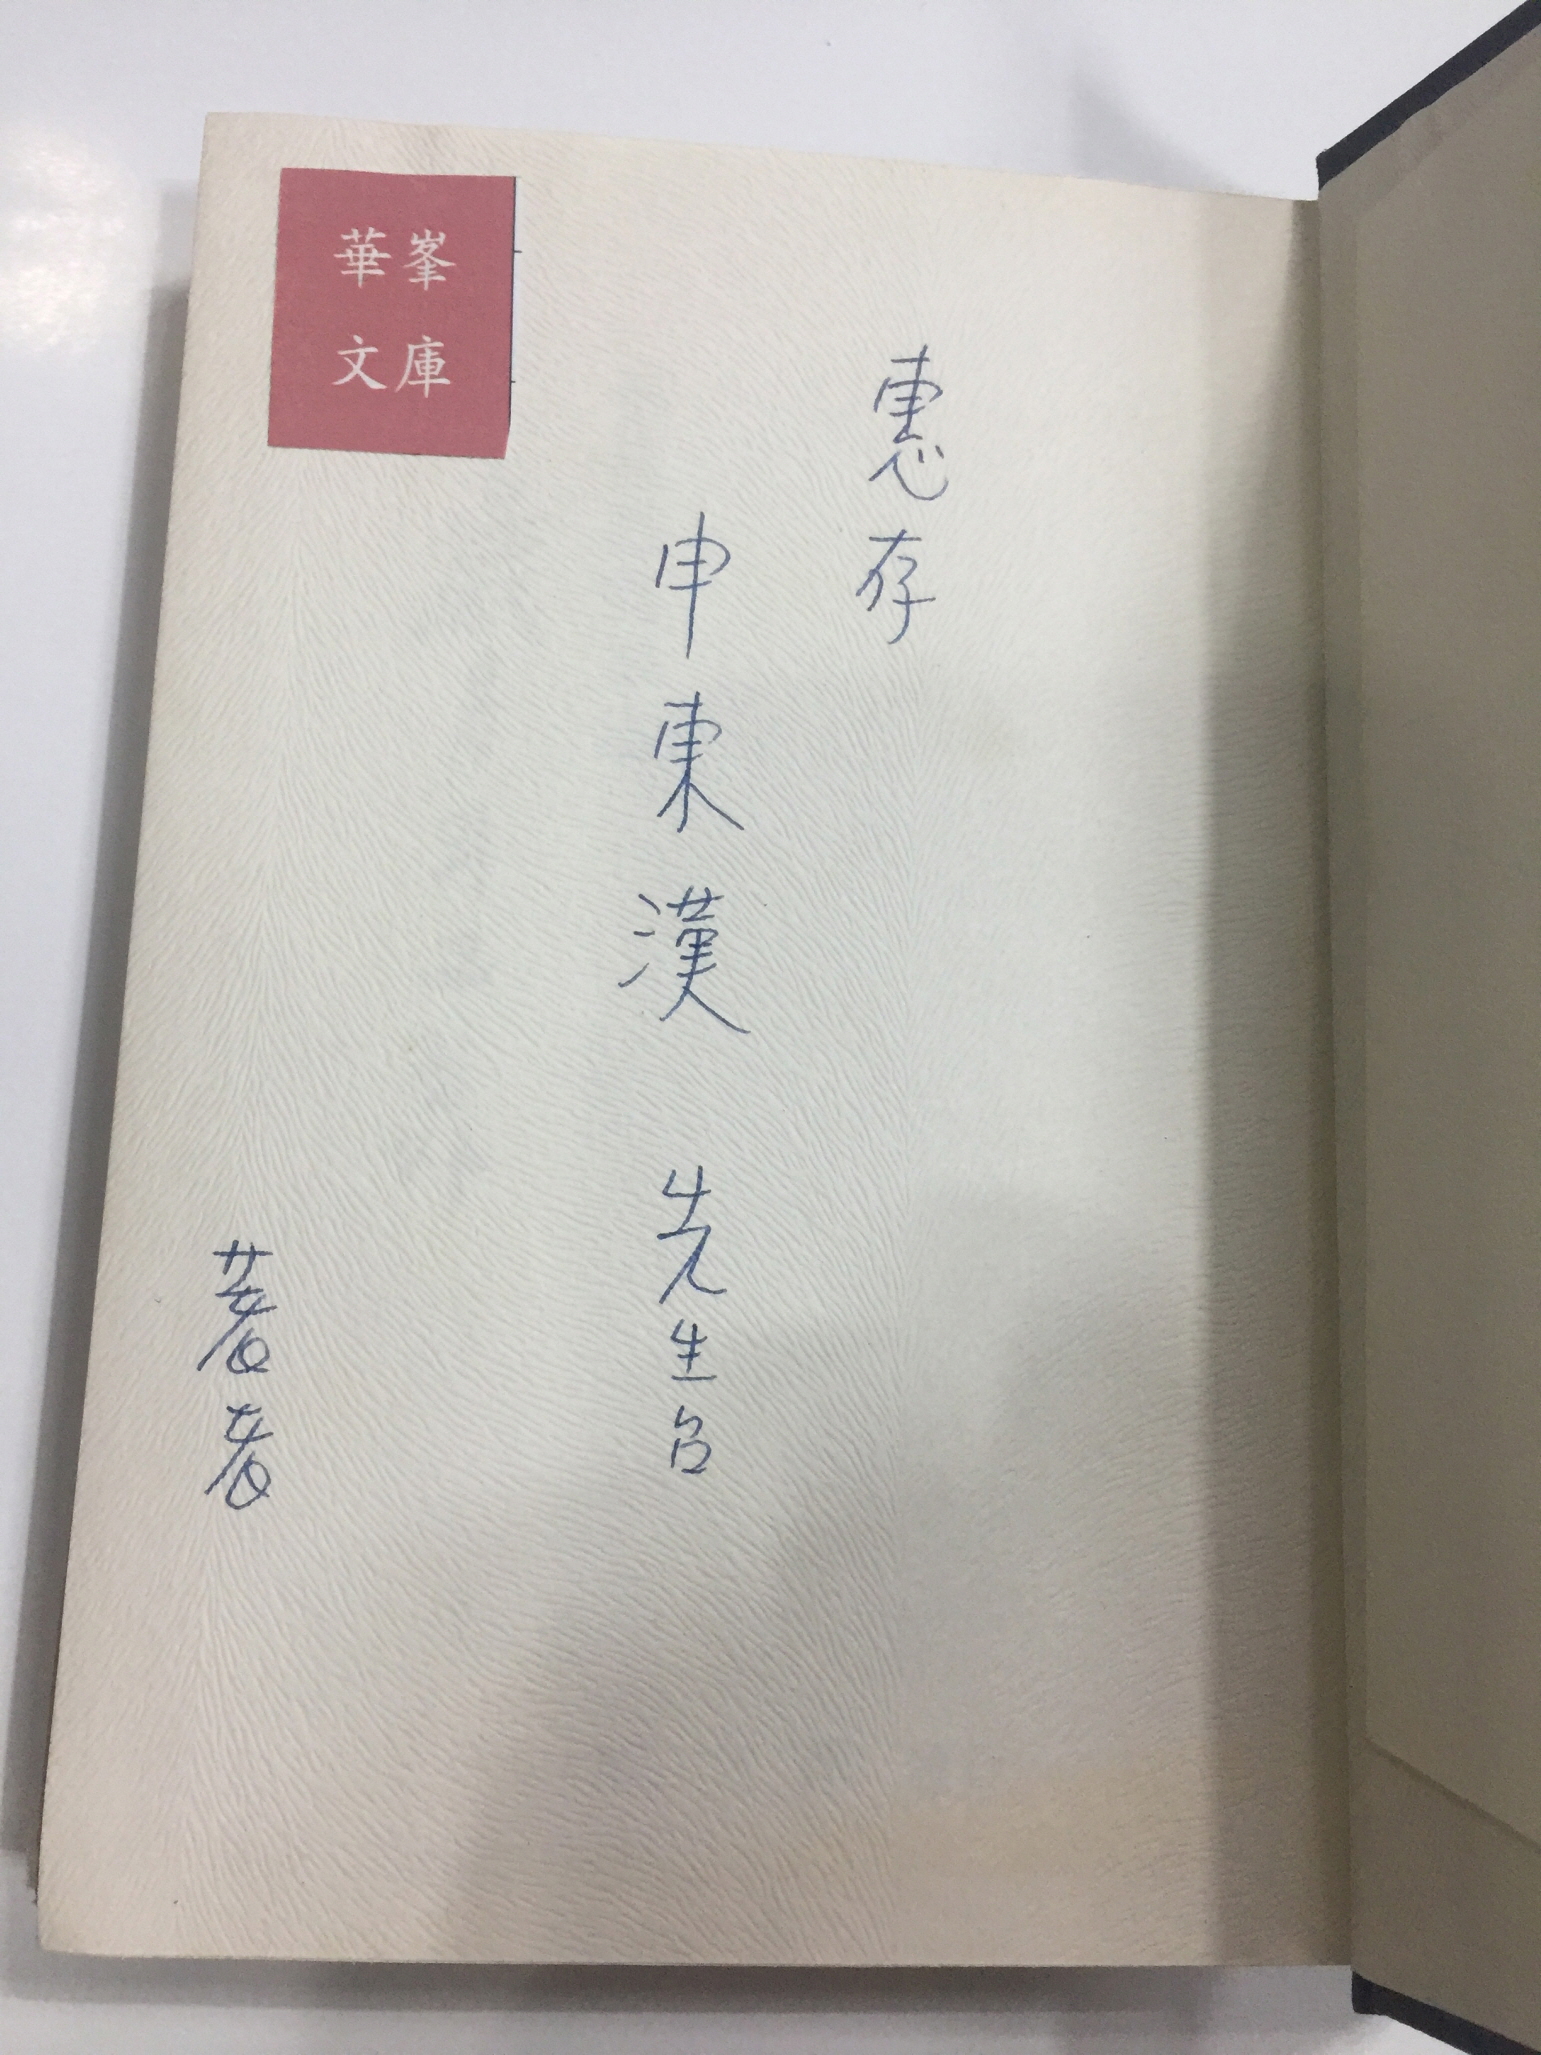 華峯
文庫
惠存
申東漢 先生台
著者